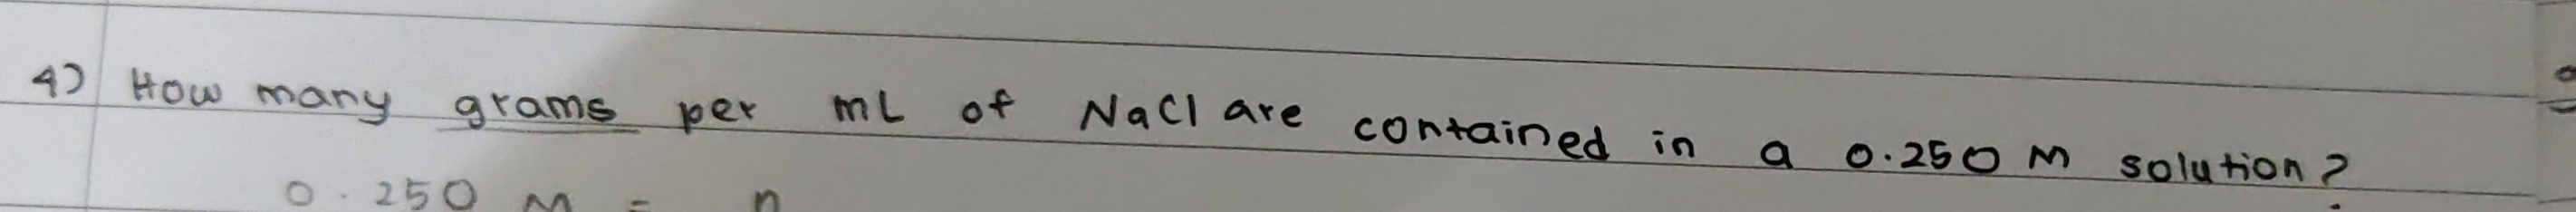 4) How many grams per mL of NaCl are contained in a 0.250 M solution?
0.250 M = n